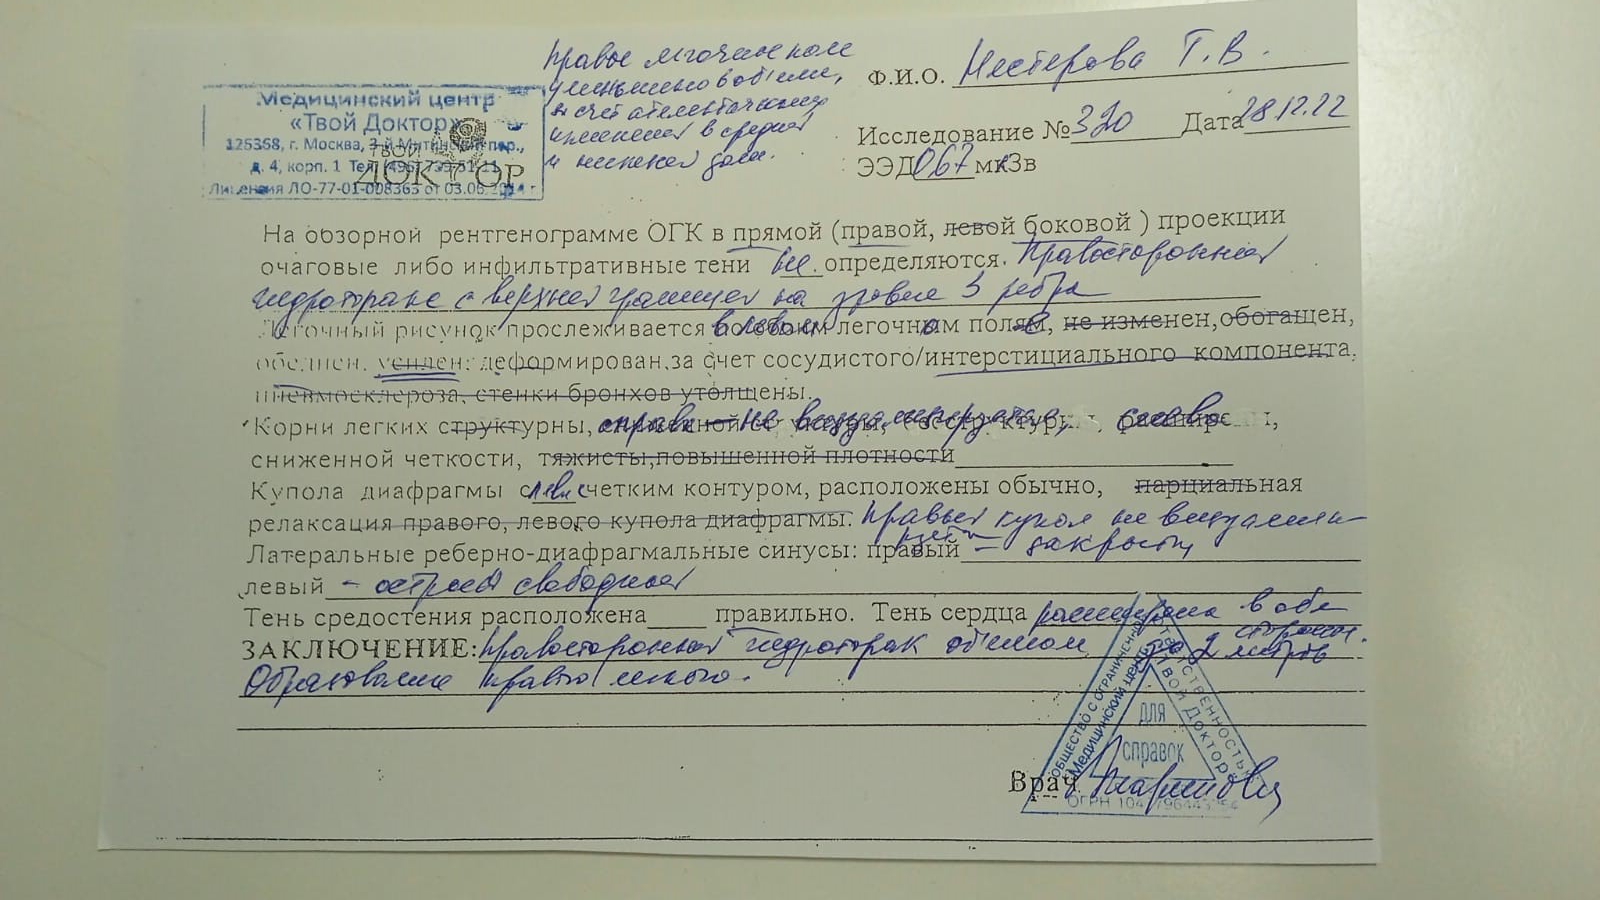 Правое легочное поле
уменьшено в объеме,
за счет ателектических
изменений в средней
и нижней доли.
Медицинский центр
«Твой Доктор»
125368, г. Москва, 3-й Митинский пер.,
д. 4, корп. 1 Тел.
Лицензия ЛО-77-01-008363 от 03.06.
ТВОЙ
ДОКТОР
Ф.И.О. Нестерова Т.В.
Исследование № 320 Дата 28.12.22
ЭЭД 067 мкЗв
На обзорной рентгенограмме ОГК в прямой (правой, левой боковой ) проекции
очаговые либо инфильтративные тени не определяются. Правосторонний
гидроторакс с верхней границей на уровне 3 ребра
Легочный рисунок прослеживается в левом легочном поле, не изменен, обогащен,
обеднен, усилен; деформирован, за счет сосудистого/интерстициального компонента,
пневмосклероза, стенки бронхов утолщены.
Корни легких структурны, справа - не слева
сниженной четкости, тяжисты, повышенной плотности
Купола диафрагмы с четким контуром, расположены обычно, парциальная
релаксация правого, левого купола диафрагмы. Правый купол не визуализи-
руется
Латеральные реберно-диафрагмальные синусы: правый – закрыт,
левый – острый свободный
Тень средостения расположена правильно. Тень сердца расширена в обе
стороны.
ЗАКЛЮЧЕНИЕ: Правосторонний гидроторакс объемом до 2 литров
Образование правого легкого.
Общество с ограниченной ответственностью
«Медицинский центр «Твой Доктор»
для
справок
ОГРН
Врач